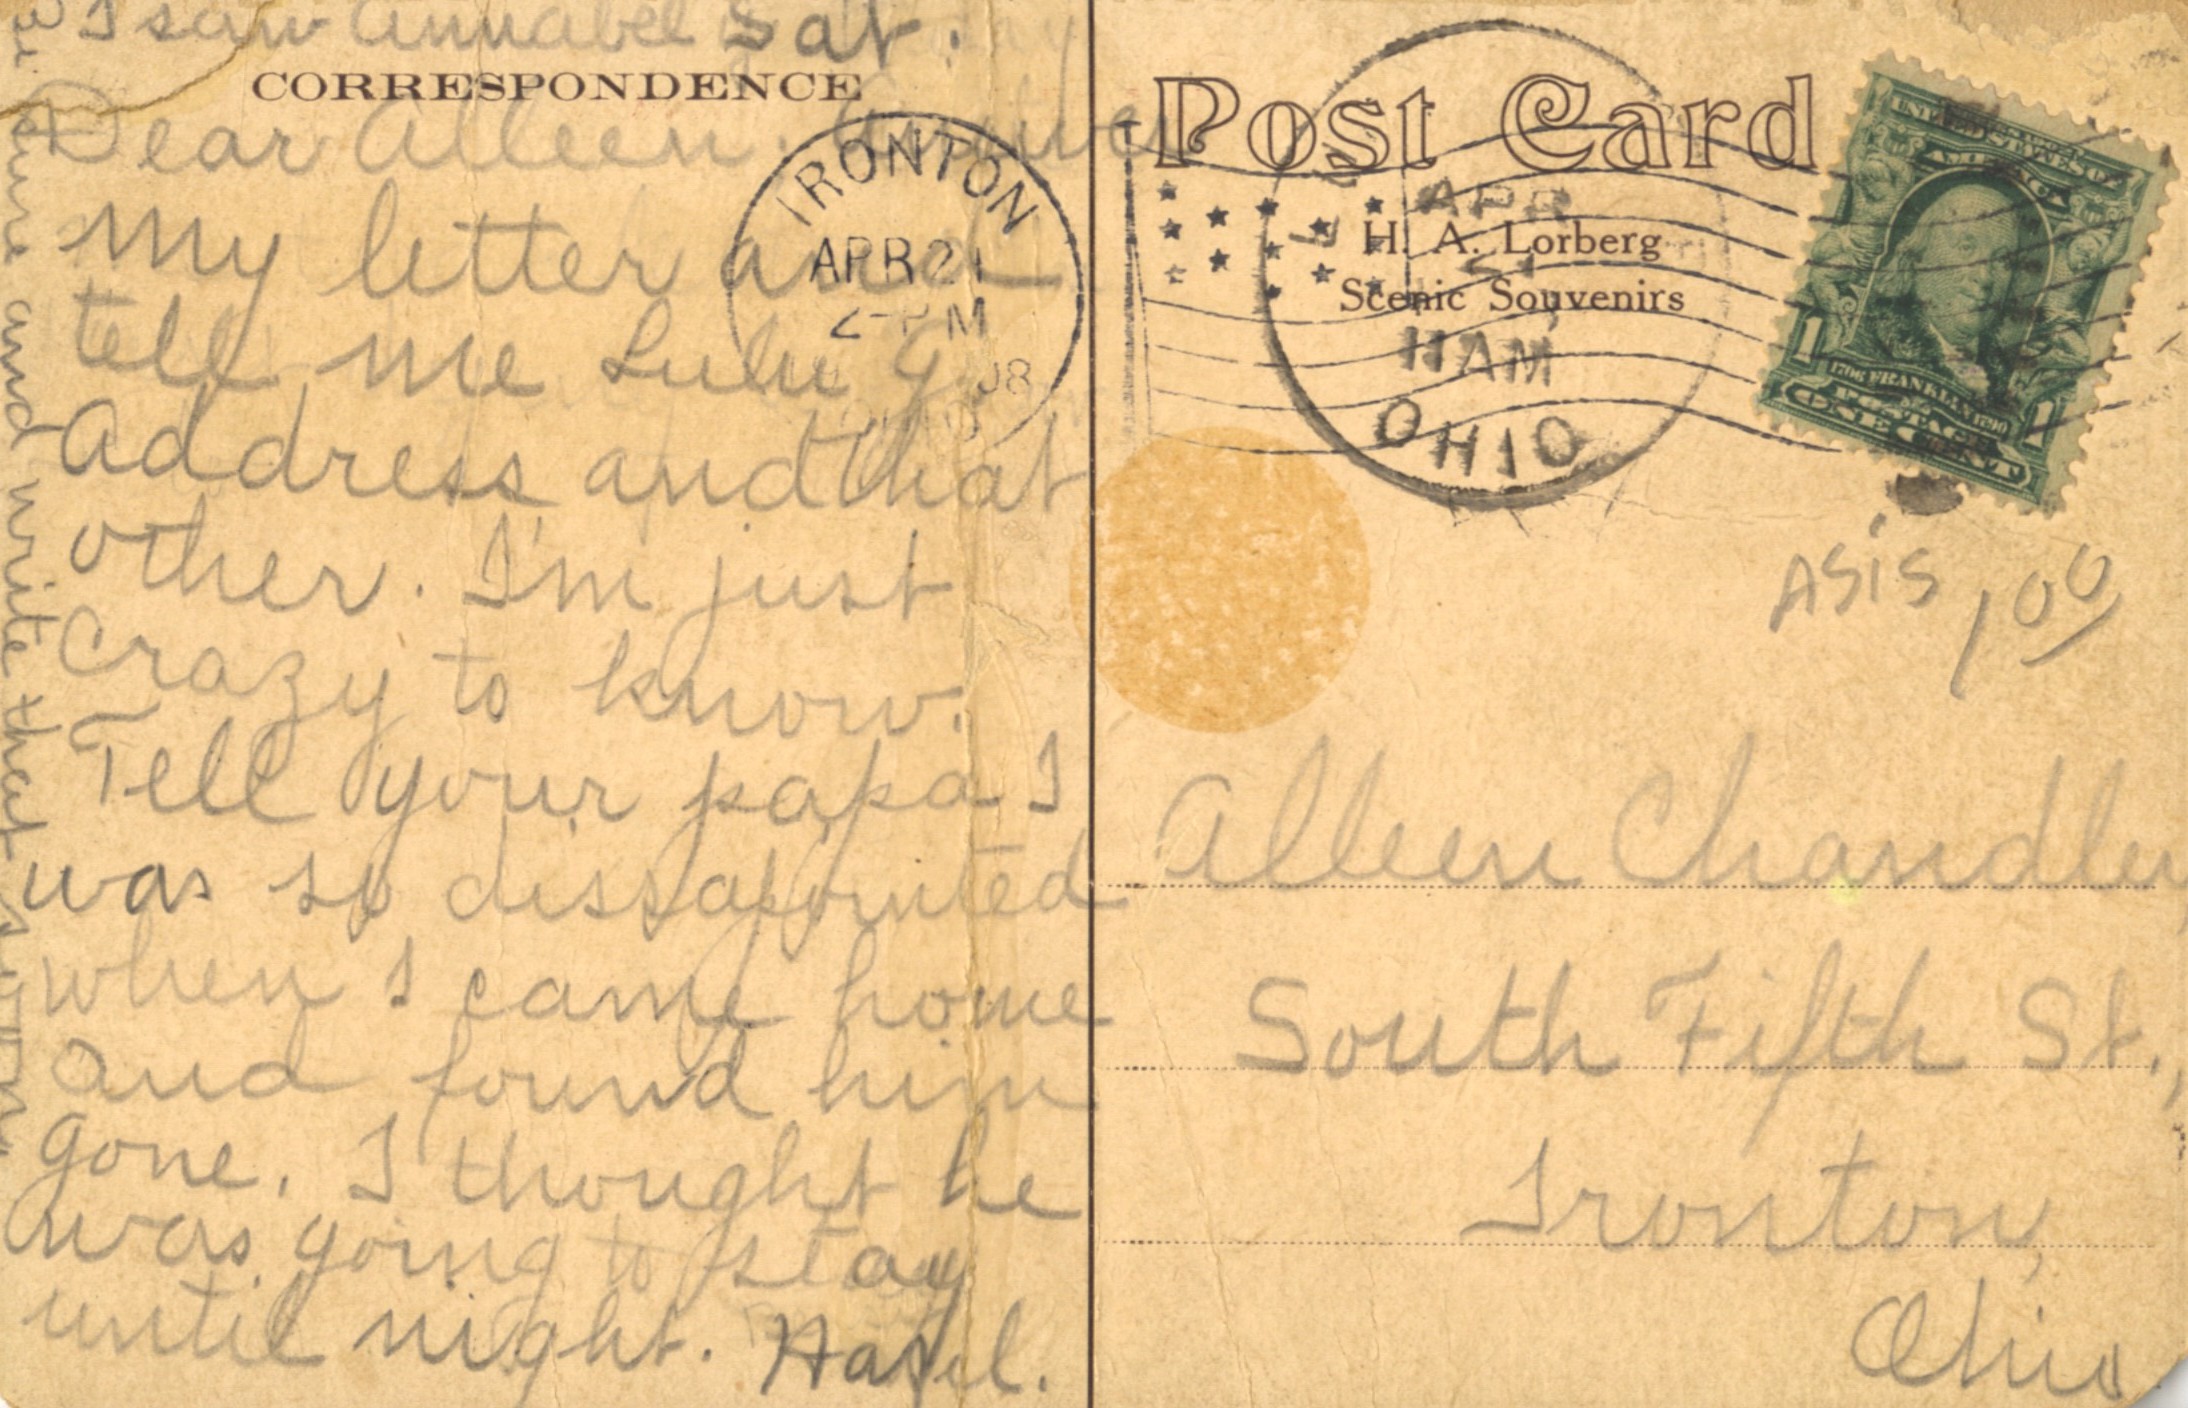 I saw Annabel Sat.
CORRESPONDENCE
Dear Alleen.
my letter and
tell me Lulu G
Address and that
other. I'm just
crazy to know.
Tell your papa I
was so dissapointed
when I came home
and found him
gone. I thought he
was going to stay
until night. Hazel.
sure and write that
IRONTON
APR 21
2-PM
08
OHIO
Post Card
H. A. Lorberg
Scenic Souvenirs
APR
21
11 AM
OHIO
UNITED STATES
OF AMERICA
1 1
1706 FRANKLIN 1790
POSTAGE
ONE CENT
ASIS 1 00
Alleen Chandler,
South Fifth St.,
Ironton,
Ohio